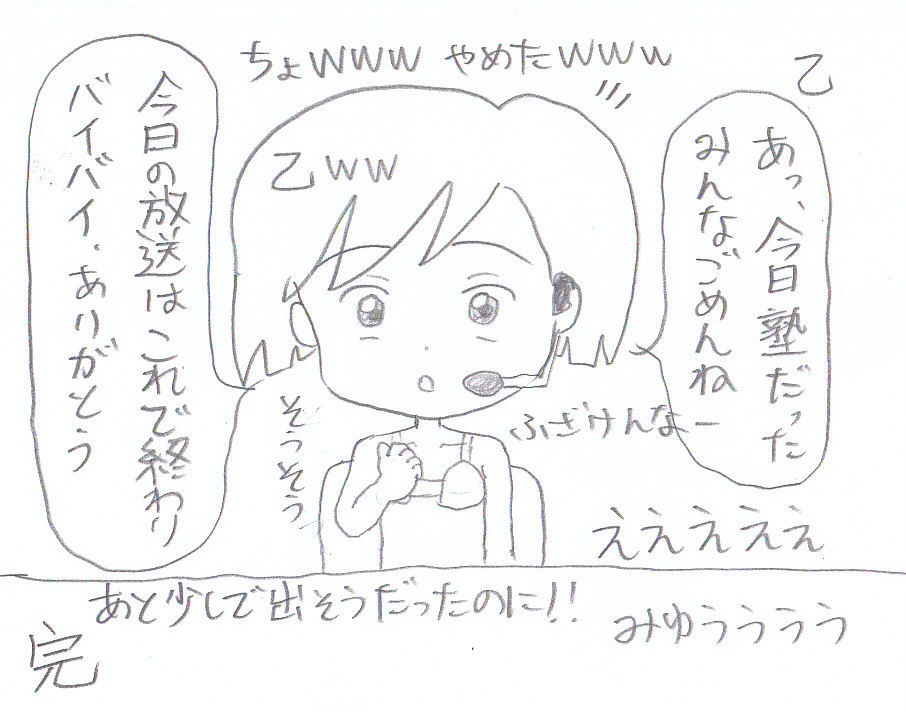 ちょwww やめたwww
乙
あっ、今日塾だった
みんなごめんねー
乙ww
今日の放送はこれで終わり
バイバイ・ありがとう
そうそう
ふざけんなー
えええええ
あと少しで出そうだったのに!!
みゆぅぅぅぅ
完